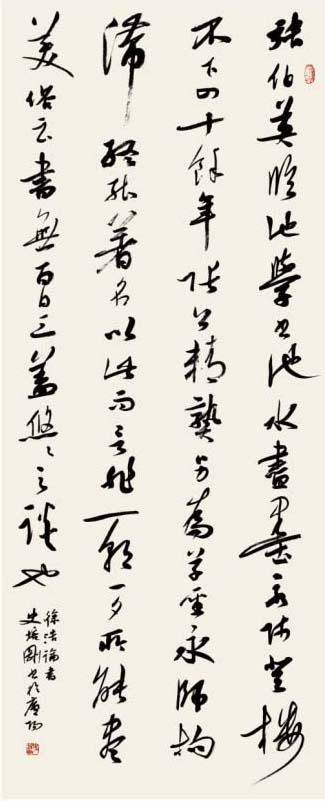 張伯英臨池學書池水盡墨永師登樓
不下四十餘年張公精熟号為草聖永師拘
滯終能著名以此而言非一朝一夕所能盡
美俗云書無百日工蓋悠〻之談也
徐浩論書
史培剛書於